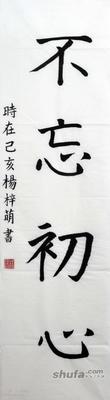 不忘初心
時在己亥楊梓萌書
shufa.com